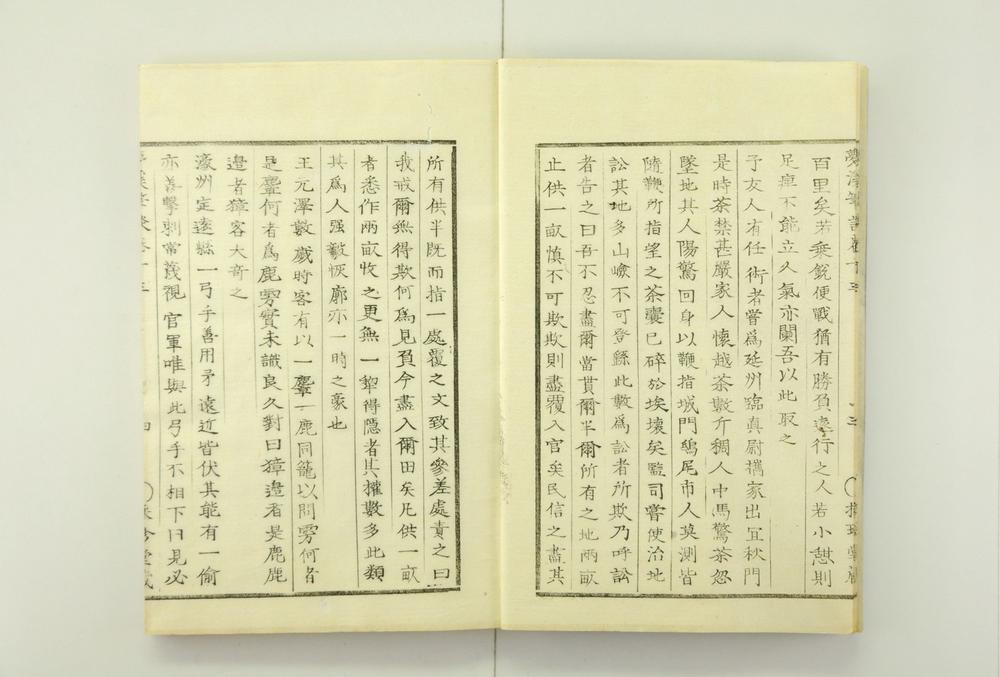 百里矣若乗銳便戰猶有勝負遠行之人若小憇則
足痺不能立人氣亦闌吾以此取之
予友人有任術者嘗爲延州臨真尉攜家出宜秋門
是時茶禁甚嚴家人懷越茶數斤稠人中馬驚茶忽
墜地其人陽驚回身以鞭指城門鴟尾市人莫測皆
隨鞭所指望之茶囊已碎於埃壤矣監司嘗使治地
訟其地多山嶮不可登縣此數爲訟者所欺乃呼訟
者告之曰吾不忍盡爾當貰爾半爾所有之地兩畝
止供一畝慎不可欺欺則盡覆入官矣民信之盡其
所有供半既而指一處覆之文致其參差處責之曰
我戒爾無得欺何爲見負今盡入爾田矣凡供一畝
者悉作兩畝收之更無一犂得隱者其權數多此類
其爲人强毅恢廓亦一時之豪也
王元澤數歲時客有以一麞一鹿同籠以問雱何者
是麞何者爲鹿雱實未識良久對曰獐邉者是鹿鹿
邉者獐客大奇之
濠州定遠縣一弓手善用矛遠近皆伏其能有一偷
亦善擊刺常蔑視官軍唯與此弓手不相下曰見必